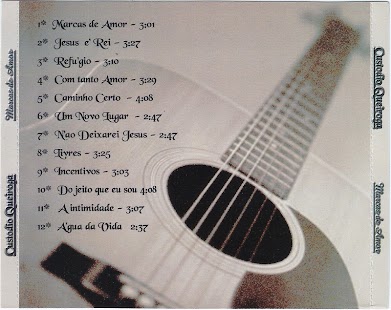 1* Marcas de Amor - 3:01
2* Jesus e' Rei - 3:27
3* Refu'gio - 3:10
4* Com tanto Amor - 3:29
5* Caminho Certo - 4:08
6* Um Novo Lugar - 2:47
7* Nao Deixarei Jesus - 2:47
8* Livres - 3:25
9* Incentivos - 3:03
10* Do jeito que eu sou 4:08
11* A intimidade - 3:07
12* A'gua da Vida 2:37
Custodio Queiroga Marcas do Amor
Custodio Queiroga Marcas do Amor